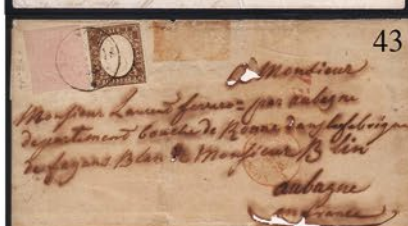 43
a Monsieur
Monsieur Laurent ferrero par aubagne
departement bouche de Ronne dans la fabrique
de fayans Blan de Monsieur B lin
aubagne
en france